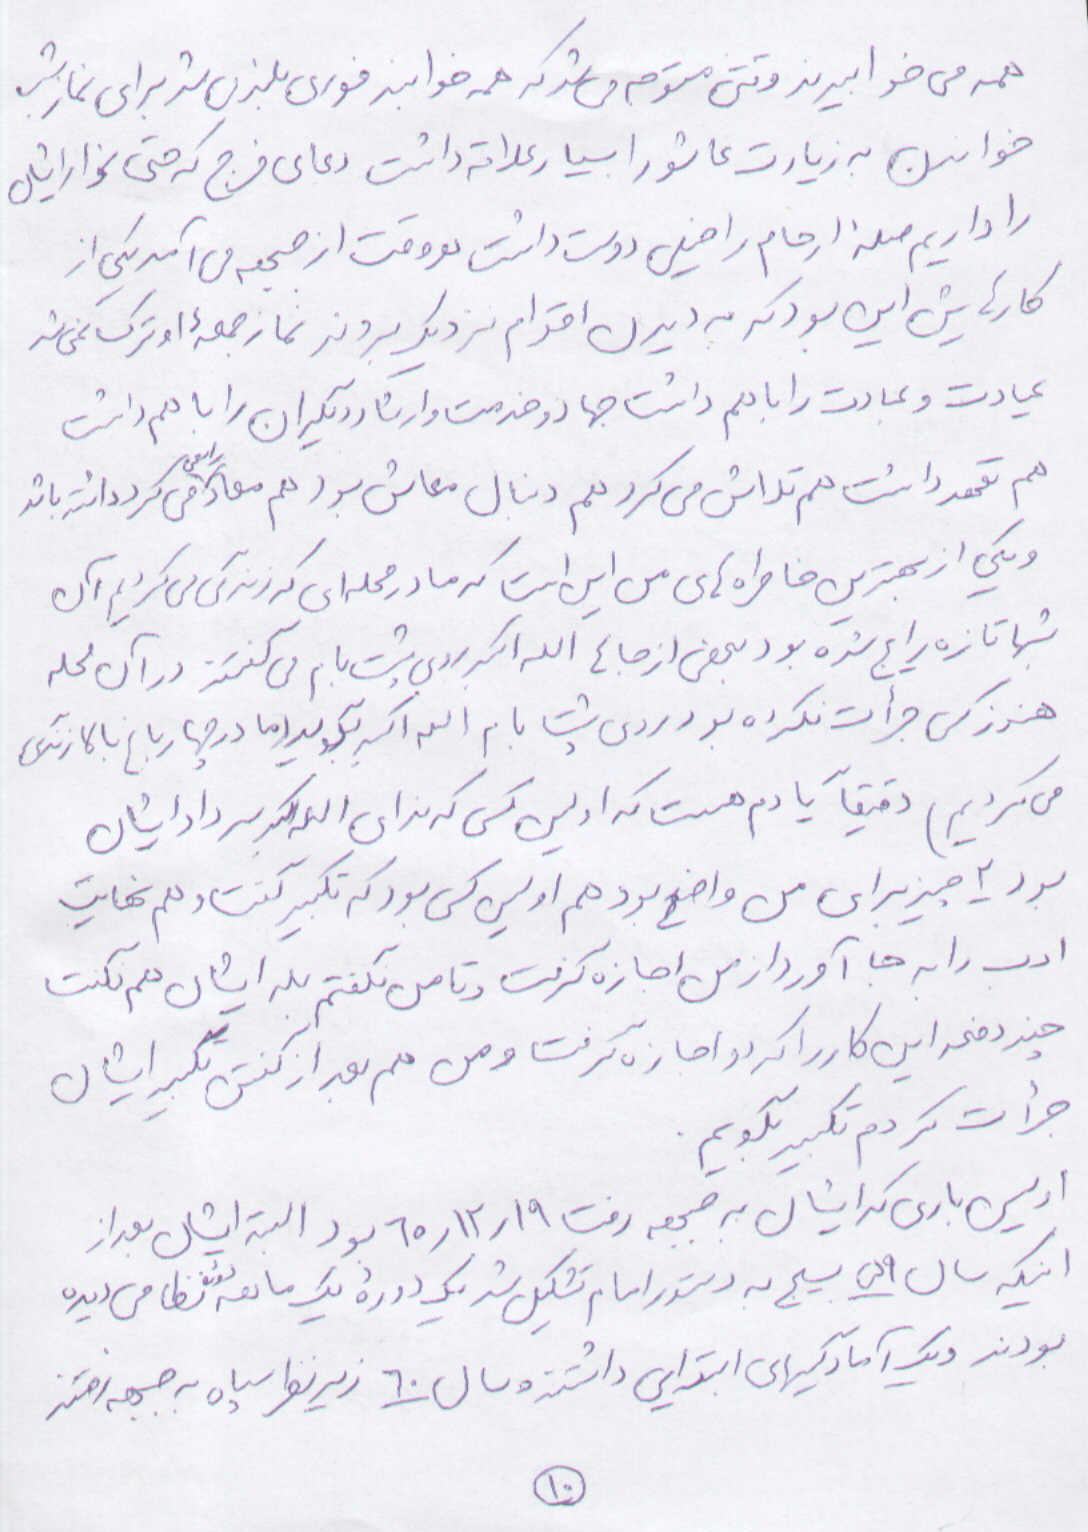 همه می خوابیدند وقتی متوجه می شد که همه خوابند فوری بلند می شد برای نماز شب
خواندن به زیارت عاشورا بسیار علاقه داشت دعای فرج که حتی نوار ایشان
را داریم صلۀ ارحام را خیلی دوست داشت هر وقت از جبهه می آمد یکی از
کارهایش این بود که به دیدن اقوام نزدیک بروند نماز جمعۀ او ترک نمی شد
عیادت و عبادت را با هم داشت جهاد و خدمت و ارشاد دیگران را با هم داشت
هم تعهد داشت هم تلاش می کرد هم دنبال معاش بود هم معاد را سعی می کرد داشته باشد
و یکی از بهترین خاطره های من این است که ما در محله ای که زندگی می کردیم آن
شبها تازه رایج شده بود بعضی از جاها الله اکبر روی پشت بام می گفتند در آن محله
هنوز کسی جرأت نکرده بود روی پشت بام الله اکبر بگوید (ما در چهارباغ بالا زندگی
می کردیم) دقیقاً یادم هست که اولین کسی که ندای الله اکبر سر داد ایشان
بود ۲ چیز برای من واضح بود هم اولین کسی بود که تکبیر گفت و هم نهایت
ادب را به جا آورد از من اجازه گرفت و تا من نگفتم بله ایشان هم نگفت
چند دفعه این کار را کرد و اجازه گرفت و من هم بعد از گفتن تکبیر ایشان
جرأت کردم تکبیر بگویم.
اولین باری که ایشان به جبهه رفت ۶۵/۱۲/۱۹ بود البته ایشان بعد از
اینکه سال ۵۹ بسیج به دستور امام تشکیل شد یک دورۀ یک ماهه نظامی دیده
بودند و یک آمادگیهای ابتدایی داشتند و سال ۶۰ زیر نظر سپاه به جبهه رفتند
۱۰